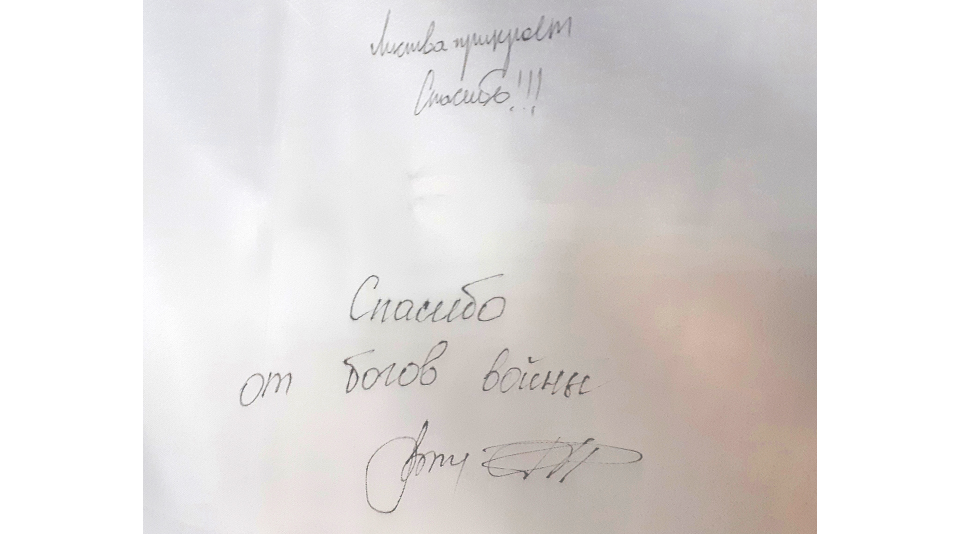 Листва прикроет
Спасибо!!!
Спасибо
от богов войны